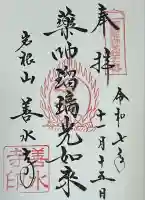 奉拝
令和七年
十一月十五日
薬師瑠璃光如来
岩根山
善水寺
善水
寺印